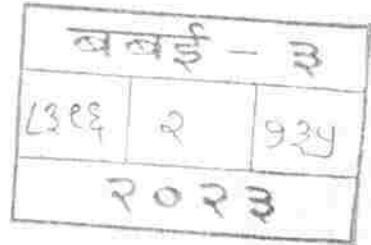 बबई - ३
८३१६ २ १३५
२०२३